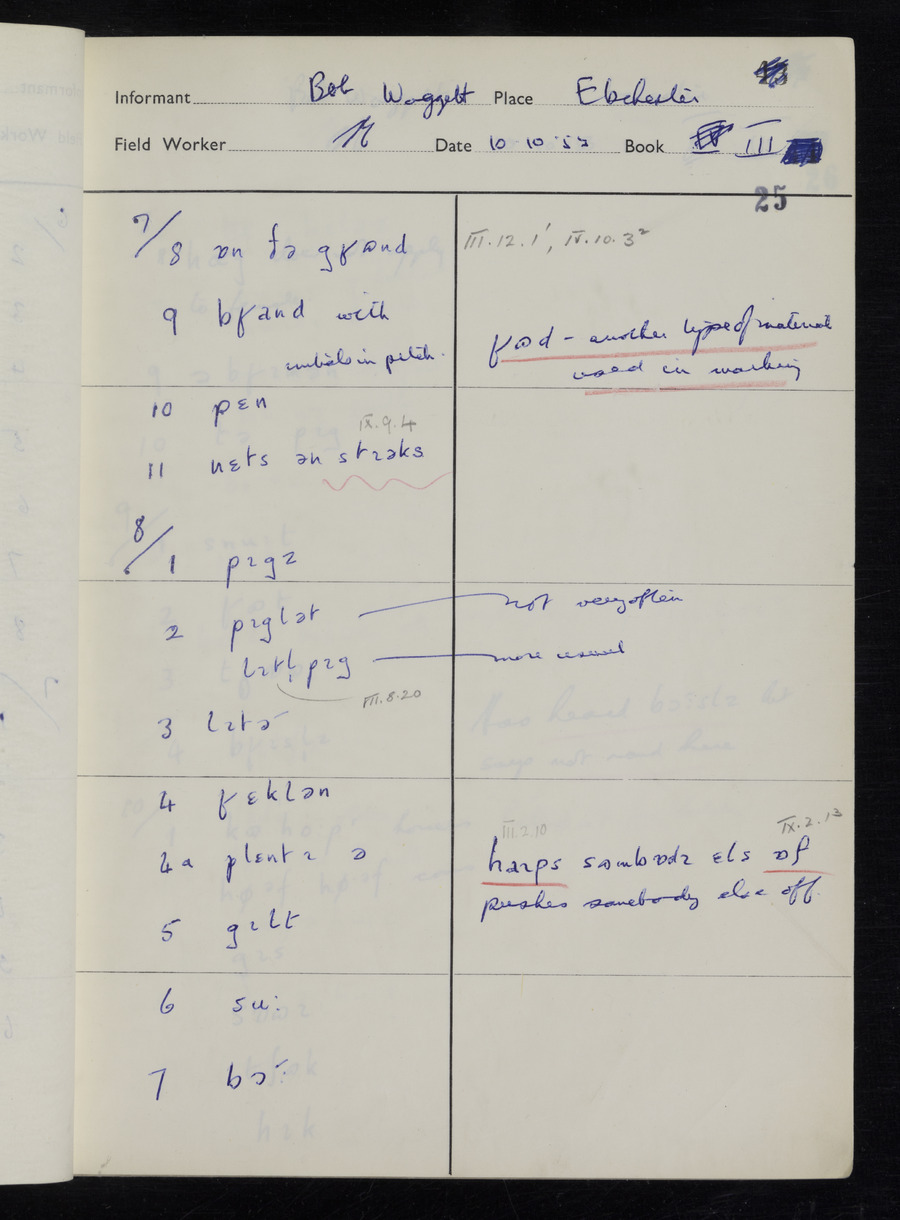 Informant Bob Waggett Place Ebchester
Field Worker Date 10 10 '53 Book III
25
7/8 ɒn ðə gʁɒnd
III.12.1', IV.10.3²
9 bʁand with
initials in pitch.
ʁɒd – another type of material
used in marking
10 pɛn
IX.9.4
11 nɛts ən stɪəks
8/1 pɪgz
2 pɪglət not very often
lɪtl̩ pɪg more usual
VII.8.20
3 lɪtə
4 ʁɛklən
III.2.10 IX.2.13
4a plɛntɪ ə
haɪps sʊmbɒdɪ ɛls ɒf
pushes somebody else off.
5 gɪlt
6 su:
7 bɔ: